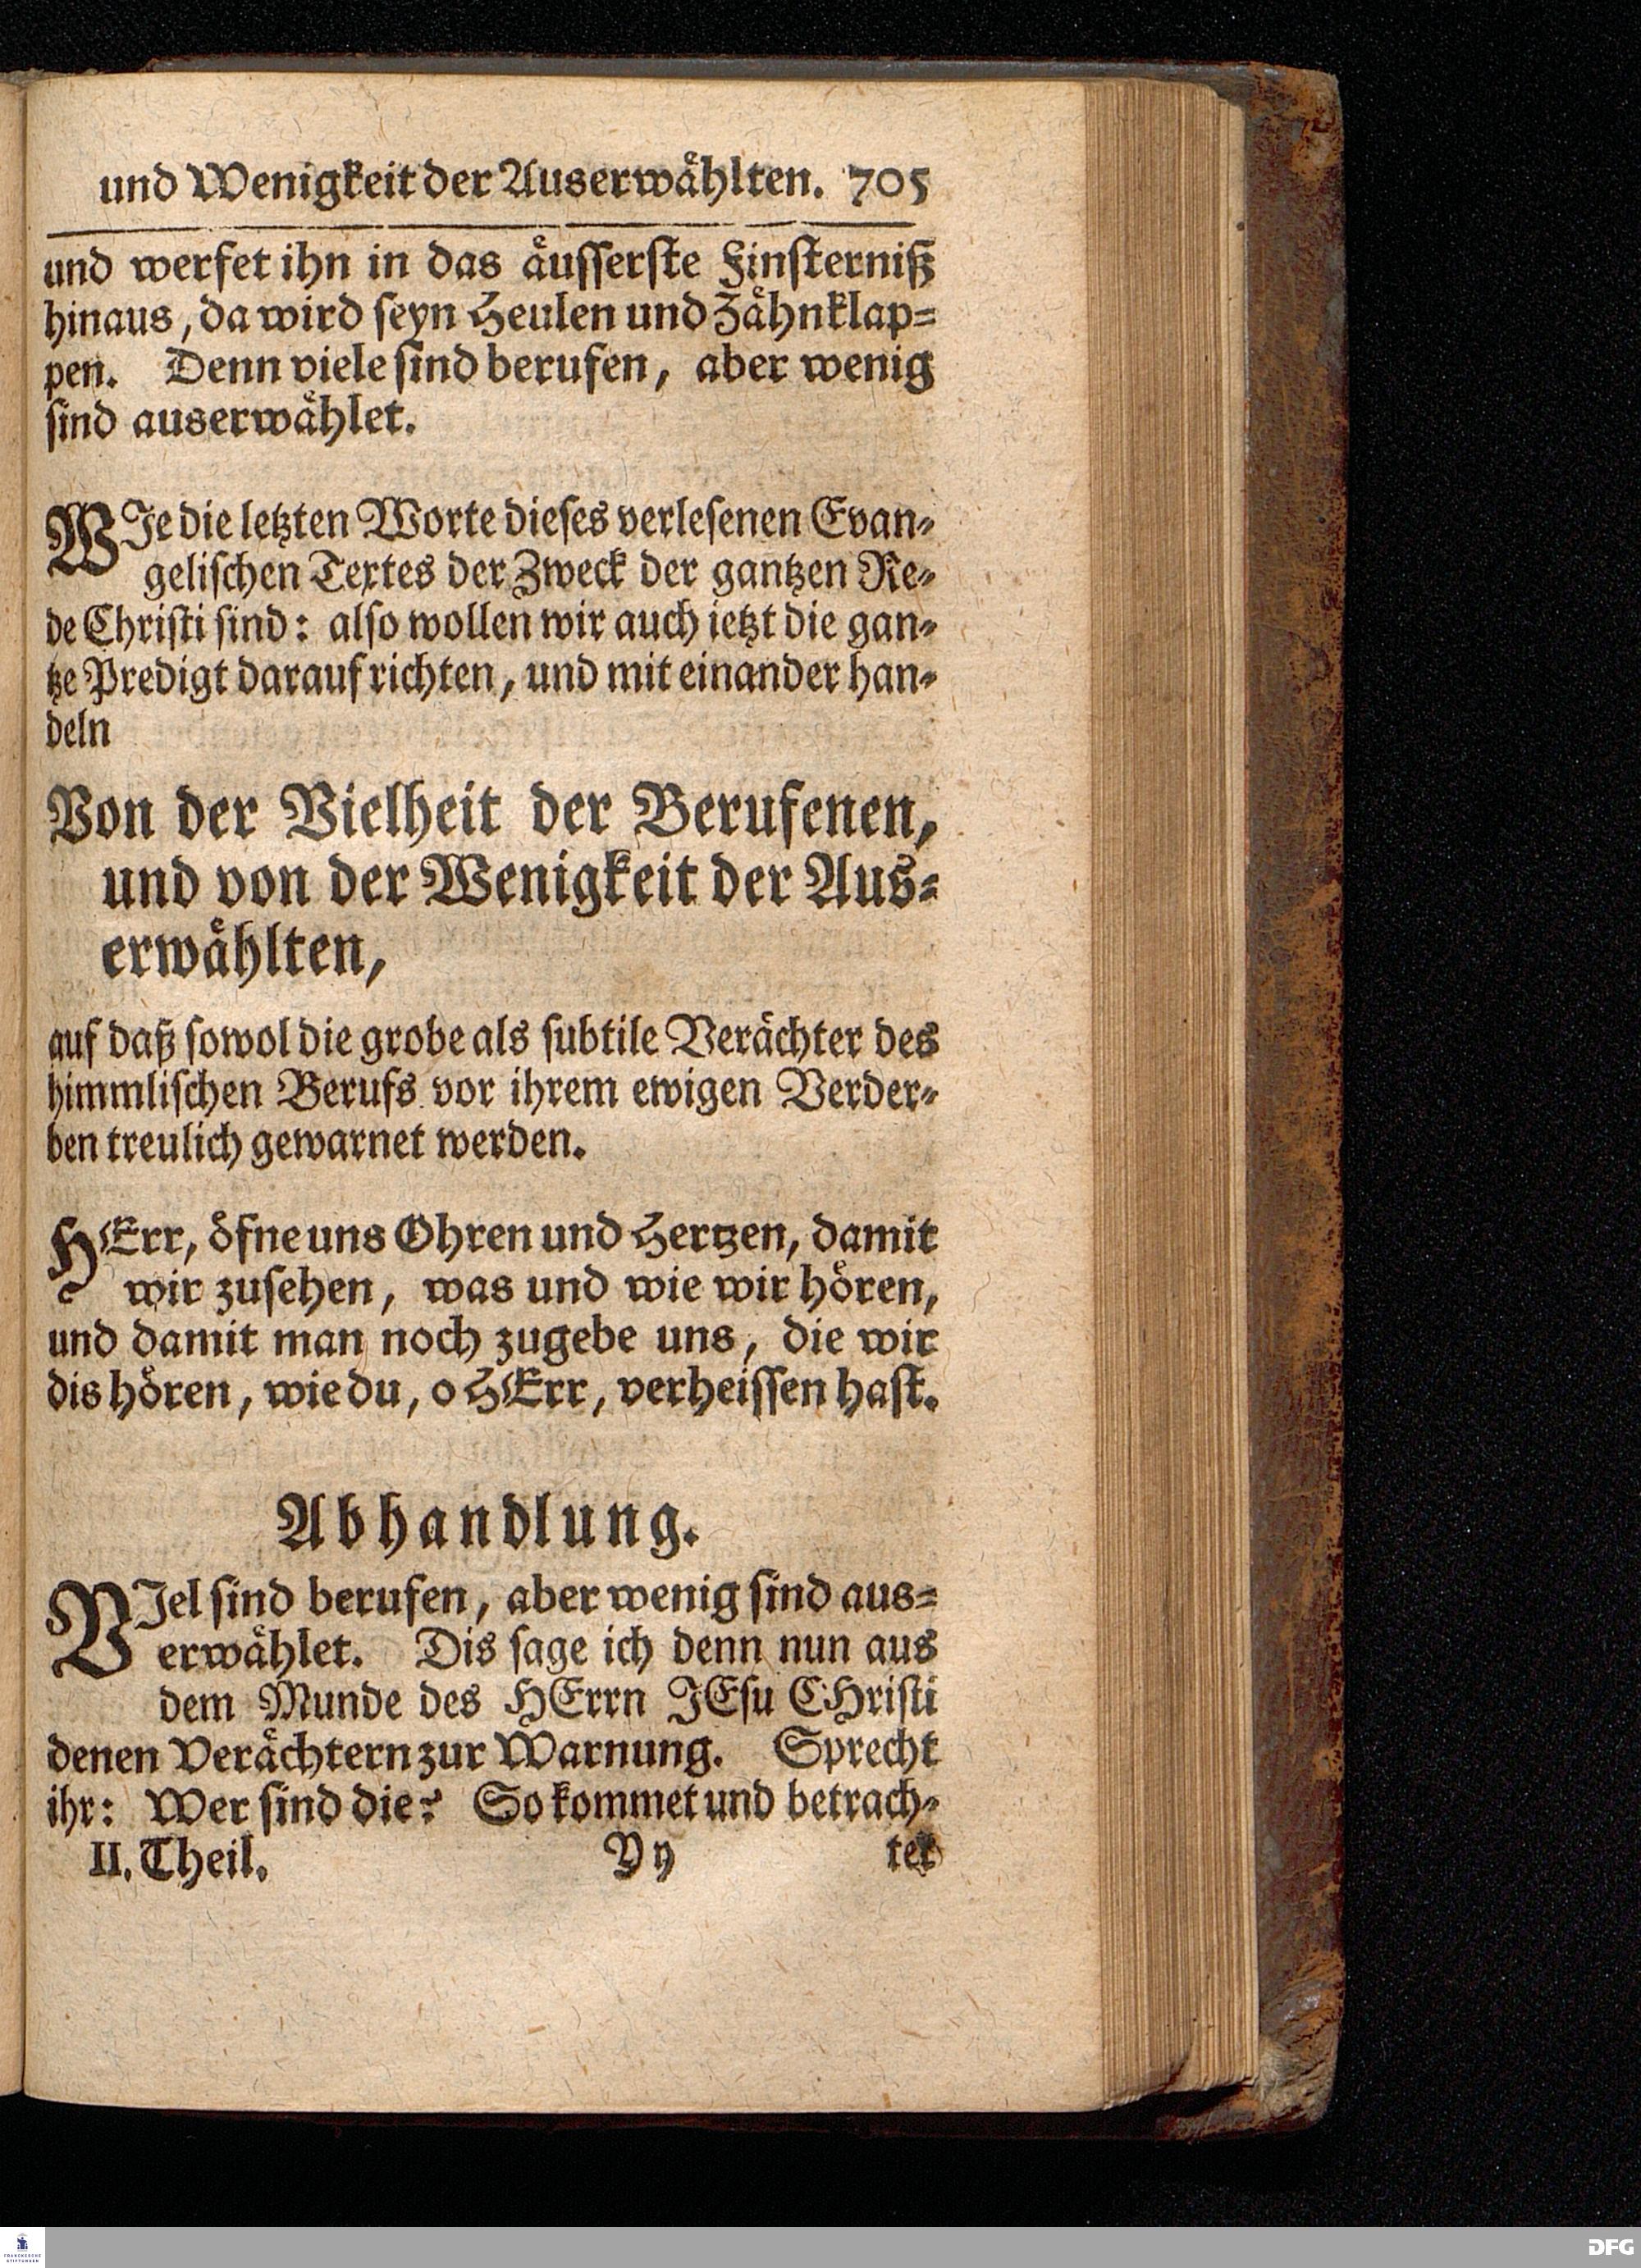 und Wenigkeit der Auserwåhlten. 705
und werfet ihn in das åuſſerſte Finſterniß
hinaus, da wird ſeyn Heulen und Zåhnklap=
pen. Denn viele ſind berufen, aber wenig
ſind auserwåhlet.
WIe die letzten Worte dieſes verleſenen Evan=
geliſchen Textes der Zweck der gantzen Re=
de Chriſti ſind: alſo wollen wir auch ietzt die gan=
tze Predigt darauf richten, und mit einander han=
deln
Von der Vielheit der Berufenen,
und von der Wenigkeit der Aus=
erwåhlten,
auf daß ſowol die grobe als ſubtile Veråchter des
himmliſchen Berufs vor ihrem ewigen Verder=
ben treulich gewarnet werden.
HErr, ofne uns Ohren und Hertzen, damit
wir zuſehen, was und wie wir hoͤren,
und damit man noch zugebe uns, die wir
dis hoͤren, wie du, o HErr, verheiſſen haſt.
Abhandlung.
VIel ſind berufen, aber wenig ſind aus=
erwåhlet. Dis ſage ich denn nun aus
dem Munde des HErrn JEſu CHriſti
denen Veråchtern zur Warnung. Sprecht
ihr: Wer ſind die? So kommet und betrach=
II. Theil. Yy tet
FRANCKESCHE
STIFTUNGEN
DFG